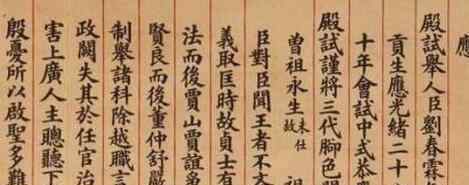 應
殿試舉人臣劉春霖
貢生應光緒二十
十年會試中式恭
殿試謹將三代腳色開
曾祖永生未仕故 祖
臣對臣聞王者不
義取匡時故貢士有
法而後賈山賈誼
賢良而後董仲舒
制舉諸科除越職言
政闕失其於任官治
害上廣人主聽聽下
殷憂所以啟聖多難